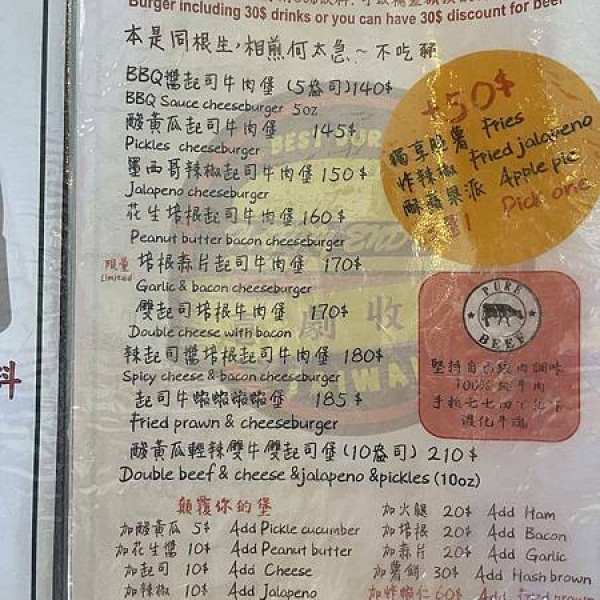 Burger including 30$ drinks or you can have 30$ discount for beer
本是同根生，相煎何太急～不吃
BBQ醬起司牛肉堡（5盎司）140$
BBQ Sauce cheeseburger 5oz
酸黃瓜起司牛肉堡 145$
Pickles cheeseburger
墨西哥辣椒起司牛肉堡 150$
Jalapeno cheeseburger
花生培根起司牛肉堡 160$
Peanut butter bacon cheeseburger
限量 培根蒜片起司牛肉堡 170$
Limited
Garlic & bacon cheeseburger
雙起司培根牛肉堡 170$
Double cheese with bacon
辣起司醬培根起司牛肉堡 180$
Spicy cheese & bacon cheeseburger
起司牛蝦蝦蝦蝦堡 185$
Fried prawn & cheeseburger
酸黃瓜輕辣雙牛雙起司堡(10盎司) 210$
Double beef & cheese & jalapeno & pickles (10oz)
+50$
獨享脆薯 Fries
炸辣椒 Fried jalapeno
酥蘋果派 Apple pie
Pick one
PURE
BEEF
100%純牛肉
顛覆你的堡
加酸黃瓜 5$ Add Pickle cucumber
加花生醬 10$ Add Peanut butter
加起司 10$ Add Cheese
加辣椒 10$ Add Jalapeno
加火腿 20$ Add Ham
加培根 20$ Add Bacon
加蒜片 20$ Add Garlic
加薯餅 30$ Add Hash brown
加炸蝦仁 60$ Add fried prawn